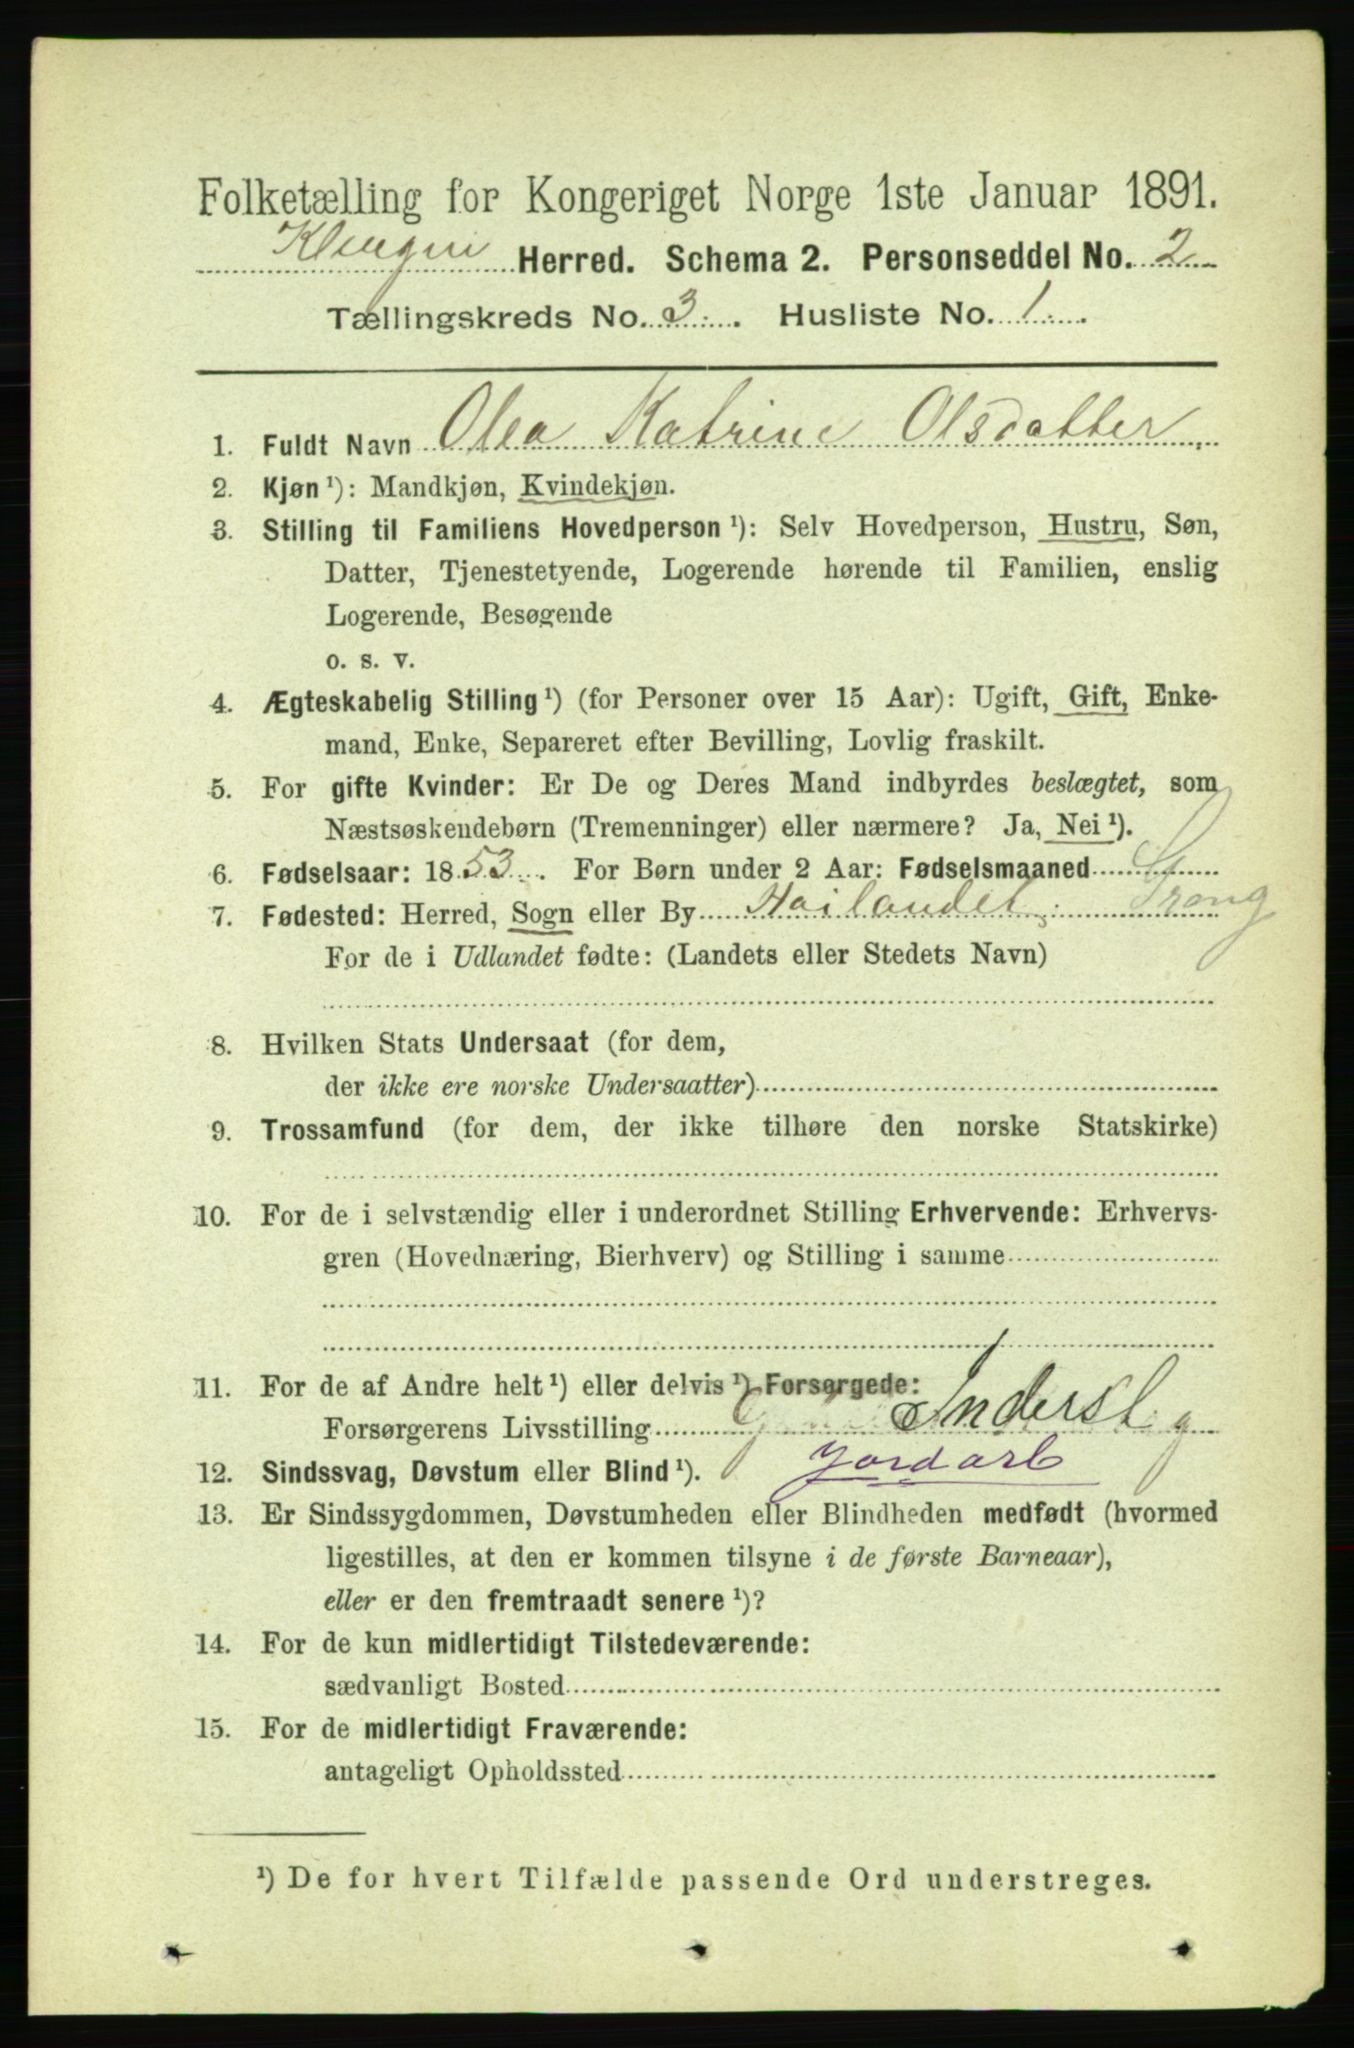 Folketælling for Kongeriget Norge 1ste Januar 1891.
Klingen Herred. Schema 2. Personseddel No. 2
Tællingskreds No. 3. Husliste No. 1.
1. Fuldt Navn Olea Katrine Olsdatter
2. Kjøn ¹): Mandkjøn, Kvindekjøn.
3. Stilling til Familiens Hovedperson ¹): Selv Hovedperson, Hustru, Søn,
Datter, Tjenestetyende, Logerende hørende til Familien, enslig
Logerende, Besøgende
o. s. v.
4. Ægteskabelig Stilling ¹) (for Personer over 15 Aar): Ugift, Gift, Enke-
mand, Enke, Separeret efter Bevilling, Lovlig fraskilt.
5. For gifte Kvinder: Er De og Deres Mand indbyrdes beslægtet, som
Næstsøskendebørn (Tremenninger) eller nærmere? Ja, Nei ¹).
6. Fødselsaar: 1853. For Børn under 2 Aar: Fødselsmaaned
7. Fødested: Herred, Sogn eller By Høilandet. Grong
For de i Udlandet fødte: (Landets eller Stedets Navn)
8. Hvilken Stats Undersaat (for dem,
der ikke ere norske Undersaatter)
9. Trossamfund (for dem, der ikke tilhøre den norske Statskirke)
10. For de i selvstændig eller i underordnet Stilling Erhvervende: Erhvervs-
gren (Hovednæring, Bierhverv) og Stilling i samme
11. For de af Andre helt ¹) eller delvis ¹) Forsørgede:
Forsørgerens Livsstilling Inderst
Jordarb
12. Sindssvag, Døvstum eller Blind ¹).
13. Er Sindssygdommen, Døvstumheden eller Blindheden medfødt (hvormed
ligestilles, at den er kommen tilsyne i de første Barneaar),
eller er den fremtraadt senere ¹)?
14. For de kun midlertidigt Tilstedeværende:
sædvanligt Bosted
15. For de midlertidigt Fraværende:
antageligt Opholdssted
¹) De for hvert Tilfælde passende Ord understreges.